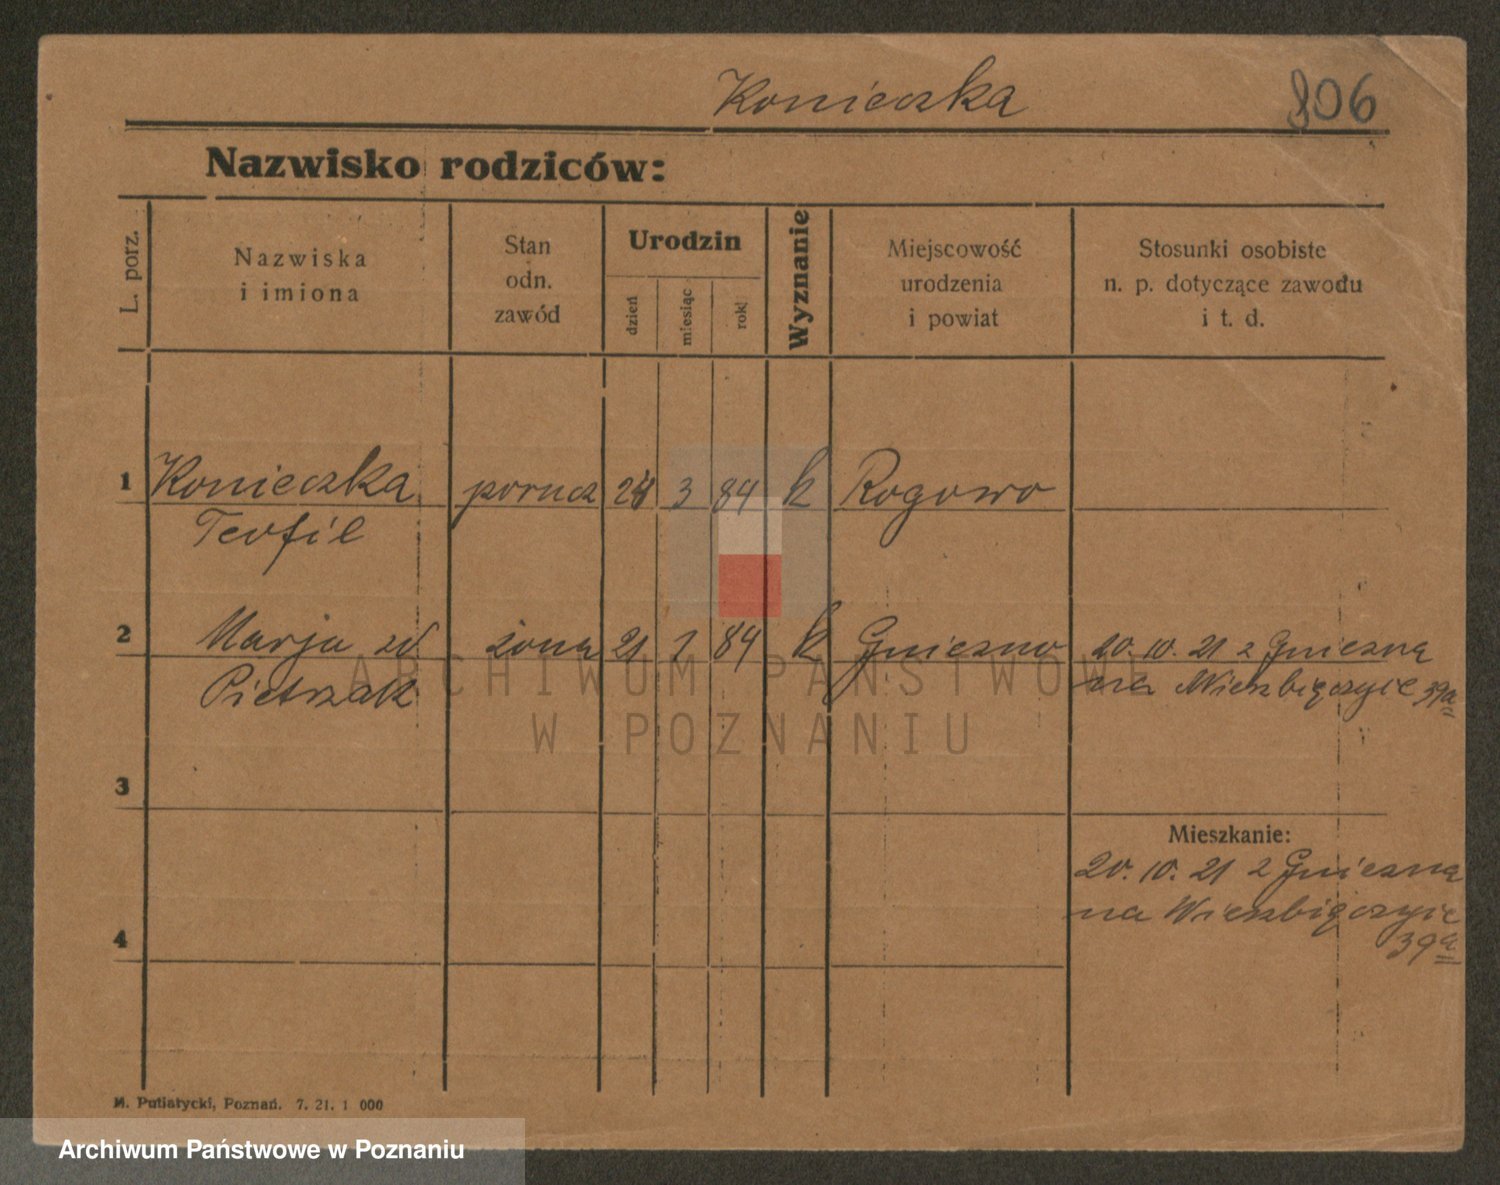 Konieczka
806
Nazwisko rodziców:
L. porz.
Nazwiska
i imiona
Stan
odn.
zawód
Urodzin
dzień
miesiąc
rok
Wyznanie
Miejscowość
urodzenia
i powiat
Stosunki osobiste
n. p. dotyczące zawodu
i t. d.
1 Konieczka porucz 3 84 k Rogowo
Teofil
2 Marja zd żona 21 1 84 k Gniezno 20. 10. 21 z Gniezna
Pietrzak na Wierzbięcyie 39a
ARCHIWUM PAŃSTWOWE
W POZNANIU
3
Mieszkanie:
20. 10. 21 z Gniezna
na Wierzbięcyie
39a
4
M. Putiatycki, Poznań. 7. 21. 1 000
Archiwum Państwowe w Poznaniu